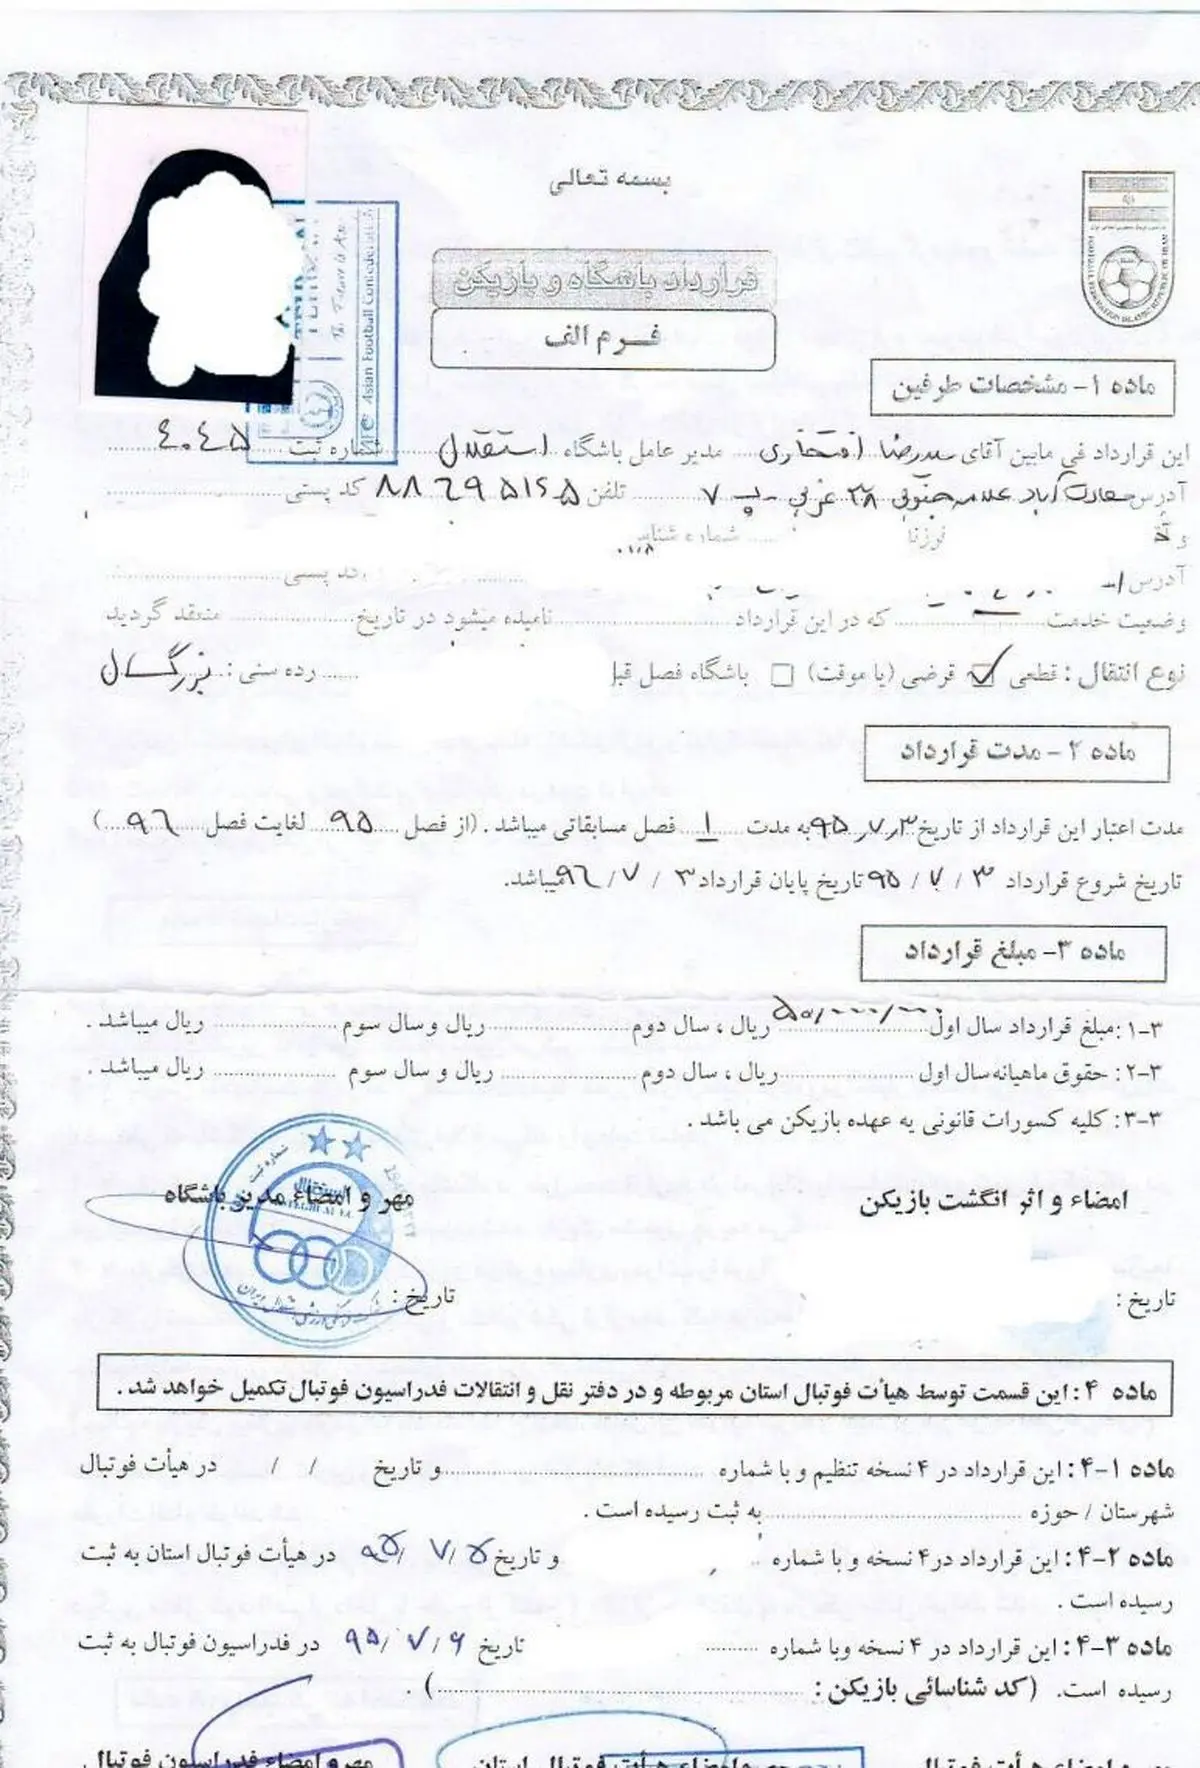 بسمه تعالی
قرارداد باشگاه و بازیکن
فرم الف
FOOTBALL FEDERATION ISLAMIC REPUBLIC OF IRAN
Asian Football Confederation
ماده ۱- مشخصات طرفین
این قرارداد فی مابین آقای سیدرضا افتخاری مدیر عامل باشگاه استقلال شماره ثبت ۴۰۴۵
آدرس سعادت آباد علامه جنوبی ۳۸ غربی - پ ۷ تلفن ۸۸۶۹۵۱۶۵ کد پستی
و شماره
آدرس کد پستی
وضعیت خدمت که در این قرارداد نامیده میشود در تاریخ منعقد گردید
نوع انتقال : قطعی ☑ قرضی (یا موقت) ☐ باشگاه فصل قبل رده سنی : بزرگسال
ماده ۲ - مدت قرارداد
مدت اعتبار این قرارداد از تاریخ ۹۵/۷/۳ به مدت ۱ فصل مسابقاتی میباشد . (از فصل ۹۵ لغایت فصل ۹۶)
تاریخ شروع قرارداد ۳ / ۷ / ۹۵ تاریخ پایان قرارداد ۳ / ۷ / ۹۶ میباشد.
ماده ۳- مبلغ قرارداد
۳-۱: مبلغ قرارداد سال اول ۵۰/۰۰۰/۰۰۰ ریال ، سال دوم ریال و سال سوم ریال میباشد .
۳-۲: حقوق ماهیانه سال اول ریال ، سال دوم ریال و سال سوم ریال میباشد .
۳-۳: کلیه کسورات قانونی به عهده بازیکن می باشد .
امضاء و اثر انگشت بازیکن مهر و امضاء مدیر باشگاه
تاریخ : تاریخ :
ماده ۴ : این قسمت توسط هیأت فوتبال استان مربوطه و در دفتر نقل و انتقالات فدراسیون فوتبال تکمیل خواهد شد .
ماده ۴-۱ : این قرارداد در ۴ نسخه تنظیم و با شماره و تاریخ / / در هیأت فوتبال
شهرستان / حوزه به ثبت رسیده است .
ماده ۴-۲ : این قرارداد در ۴ نسخه و با شماره و تاریخ ۹۵/ ۷/ ۵ در هیأت فوتبال استان به ثبت
رسیده است .
ماده ۴-۳ : این قرارداد در ۴ نسخه وبا شماره تاریخ ۹۵/ ۷/ ۶ در فدراسیون فوتبال به ثبت
رسیده است. (کد شناسائی بازیکن : ) .
مهر و امضاء هیأت فوتبال مهر و امضاء هیأت فوتبال استان مهر و امضاء فدراسیون فوتبال